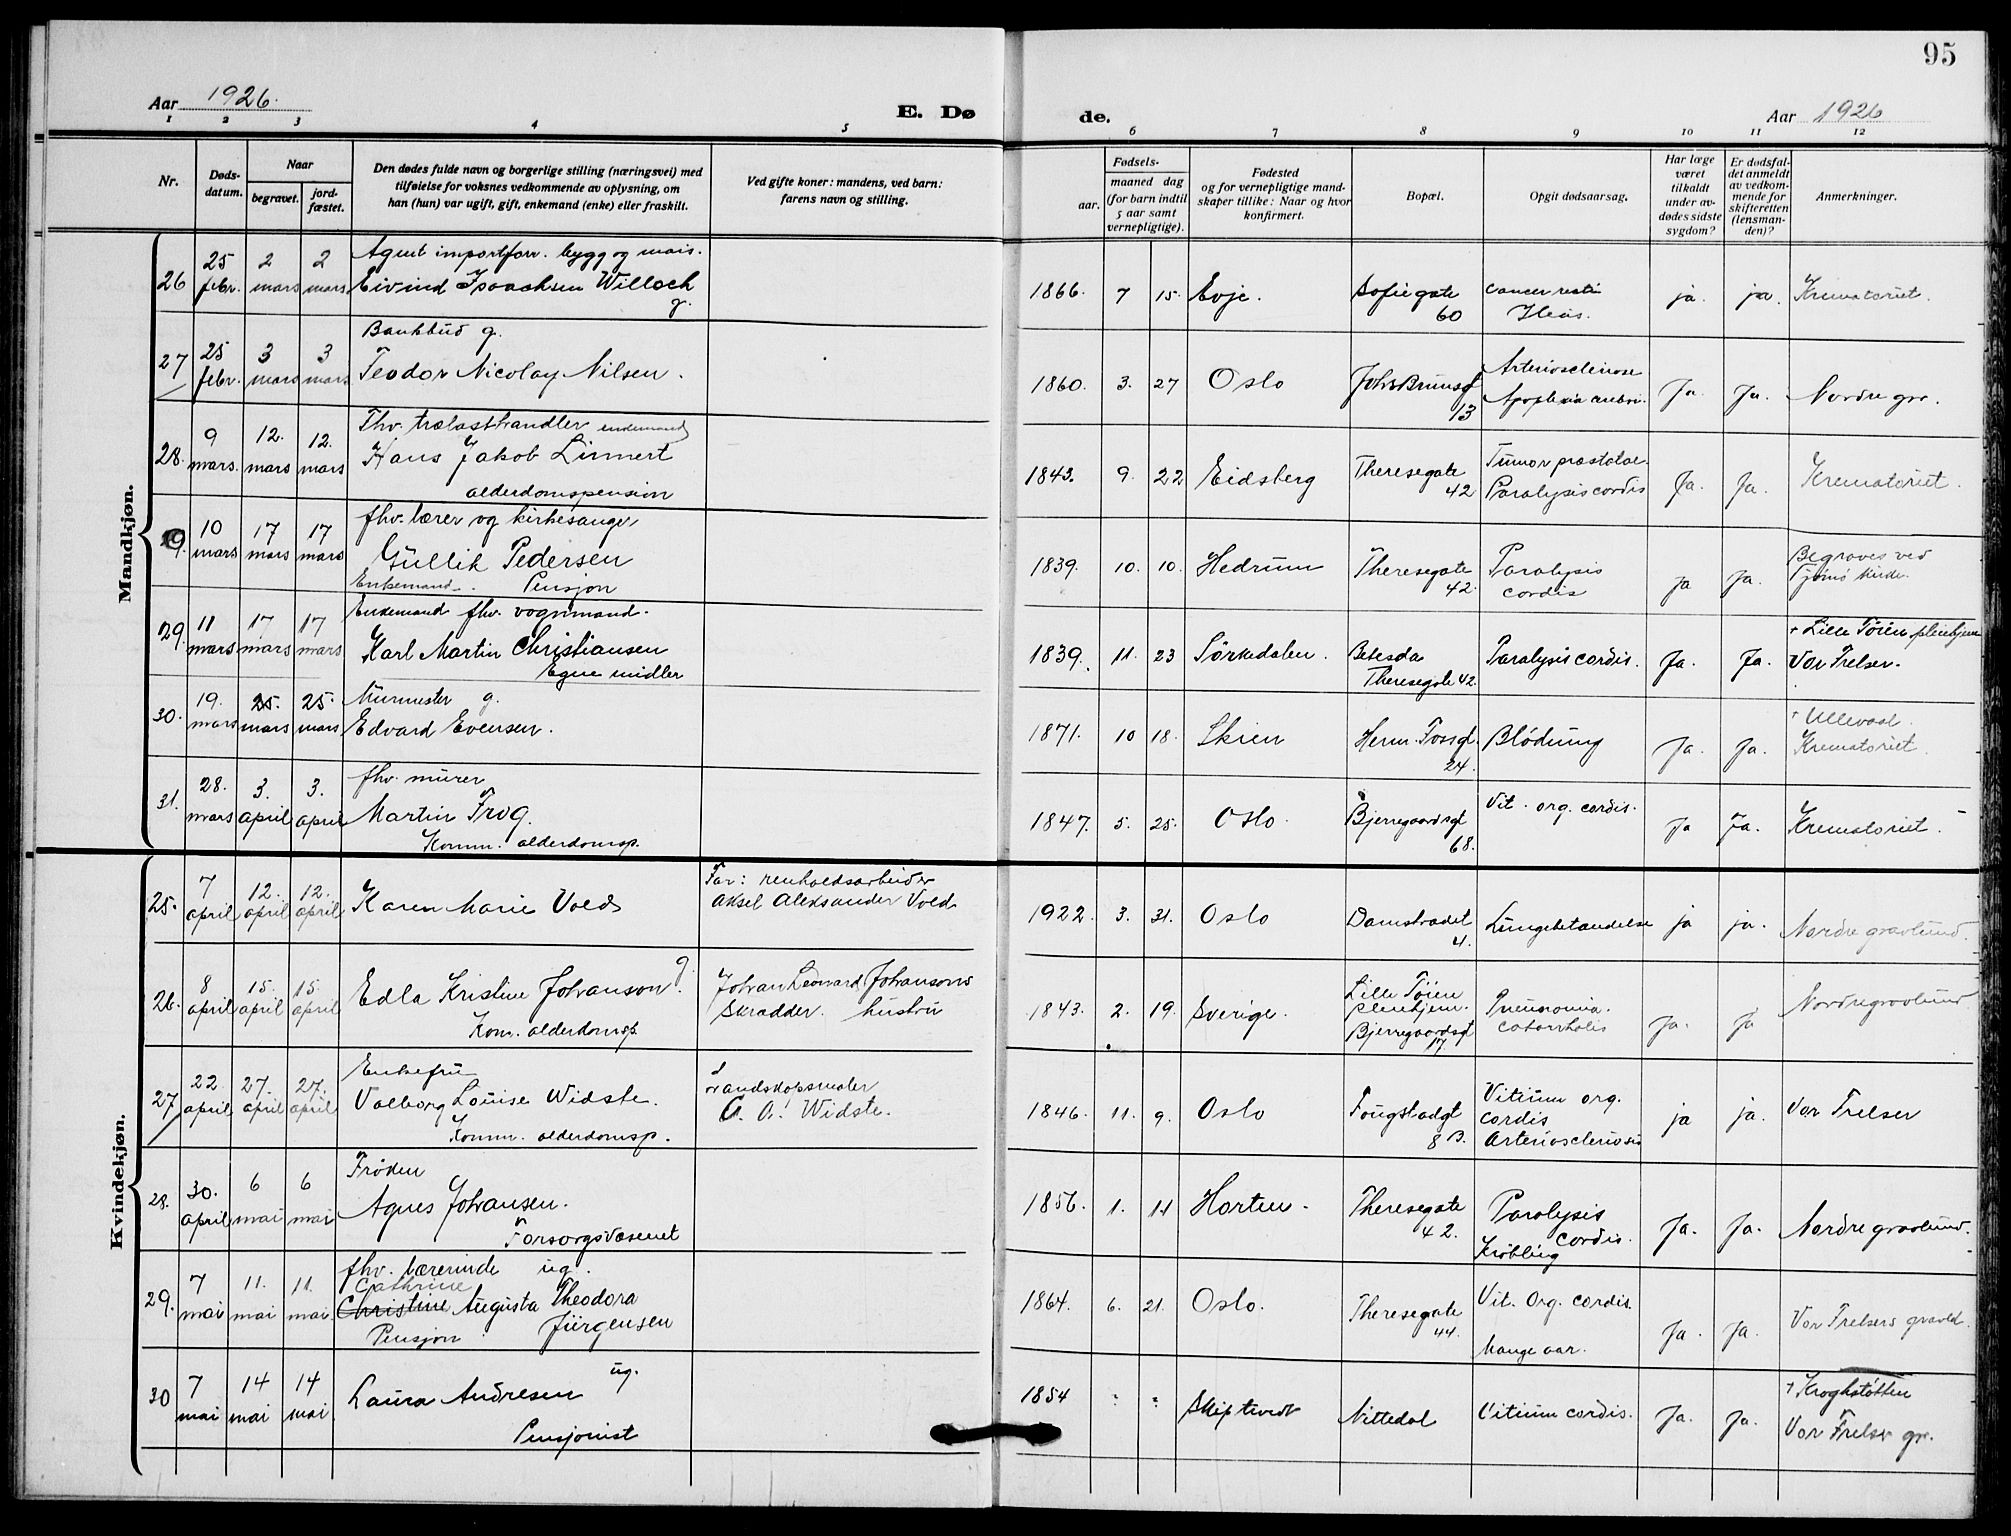 95
Aar 1926. E. Dø de. Aar 1926
1 2 3 4 5 6 7 8 9 10 11 12
Nr.
Døds-
datum.
Naar
begravet.
jord-
fæstet.
Den dødes fulde navn og borgerlige stilling (næringsvei) med
tilføielse for voksnes vedkommende av oplysning, om
han (hun) var ugift, gift, enkemand (enke) eller fraskilt.
Ved gifte koner: mandens, ved barn:
farens navn og stilling.
Fødsels-
aar.
maaned dag
(for barn indtil
5 aar samt
vernepligtige).
Fødested
og for vernepligtige mand-
skaper tillike: Naar og hvor
konfirmert.
Bopæl.
Opgit dødsaarsag.
Har læge
været
tilkaldt
under av-
dødes sidste
sygdom?
Er dødsfal-
det anmeldt
av vedkom-
mende for
skifteretten
(lensman-
den)?
Anmerkninger.
Mandkjøn.
26 25 febr. 2 mars 2 mars
Agent importforr. bygg og mais.
Eivind Isaachsen Willoch
g.
1866. 7 15. Evje.
Sofiegate
60
cancer recti
Ileus.
ja. ja. Krematoriet.
27 25 febr. 3 mars 3 mars
Bankbud g.
Teodor Nicolay Nilsen.
1860. 3. 27 Oslo
Johs Brunsgt
13
Arteriosclerose
Apoplexia
Ja. Ja. Nordre gr.
28. 9 mars. 12. mars 12. mars
Fhv. trælasthandler enkemand
Hans Jakob Linnert
alderdomspension
1843. 9. 22 Eidsberg
Theresegate
42
Tumor prostatae.
Paralysis cordis
Ja. Ja. Krematoriet.
10 mars 17 mars 17 mars
fhv. lærer og kirkesanger
Gullik Pedersen
Enkemand. Pensjon
1839. 10. 10. Hedrum
Theresegate
42.
Paralysis
cordis
Ja Ja.
Begraves ved
Tjømø kirke.
29. 11 mars 17 mars 17 mars
Enkemand fhv. vognmand.
Karl Martin Christiansen
Egne midler
1839. 11. 23 Sørkedalen.
Betesda
Theresegate 42.
Paralysis cordis.
Ja. Ja.
+ Lille Tøien pleiehjem
Vor Frelser.
30. 19. mars 25. mars 25. mars
Murmester g.
Edvard Evensen.
1871. 10 18. Skien
Herm. Fossgt.
24.
Blødning
Ja. Ja.
+ Ullevaal.
Krematoriet.
31. 28. mars 3. april 3. april
fhv. murer
Martin Frog.
Komm. alderdomsp.
1847. 5. 25. Oslo.
Bjerregaardsgt
68.
Vit. org. cordis.
Ja Ja. Krematoriet.
Kvindekjøn.
25. 7 april 12. april 12. april
Karen Marie Vold
Far: renholdsarbeider
Aksel Aleksander Vold
1922. 3. 31. Oslo
Damstrædet
4.
Lungebetændelse
ja ja. Nordre gravlund.
26. 8 april 15. april 15. april
Edla Kristine Johanson g.
Kom. alderdomsp.
Johan Leonard Johansons
Skrædder. hustru
1843. 2. 19. Sverige.
Lille Tøien
pleiehjem.
Bjerregaardsgt
17.
Pneumonia.
catarrhalis
Ja. Ja Nordre gravlund
27 22 april 27. april 27. april
Enkefru
Valborg Louise Widste.
Komm. alderdomsp.
Landskapsmaler
C. A. Widste.
1846. 11. 9. Oslo
Tougstadgt
8 B.
Vitium org.
cordis
Arteriosclerosis
ja ja. Vor Frelser
28. 30. april 6 mai 6 mai
Frøken
Agnes Johansen.
Forsorgsvæsenet
1856. 1. 11 Horten.
Theresegate
42.
Paralysis
cordis.
Krøbling
Ja. Ja. Nordre gravlund.
29. 7 mai 11. mai 11. mai
fhv. lærerinde ug.
Cathrine
Christine Augusta Theodora
Jürgensen
Pensjon
1864. 6. 21. Oslo.
Theresegate
44.
Vit. Org. cordis.
Mange aar.
Ja. Ja. Vor Frelsers gravld.
30 7 mai 14 mai 14 mai
Laura Andresen ug.
Pensjonist
1854 " " Skiptvedt
Nittedal
Vitium cordis.
Ja. Ja.
+ Kroghstøtten
Vor Frelser gr.